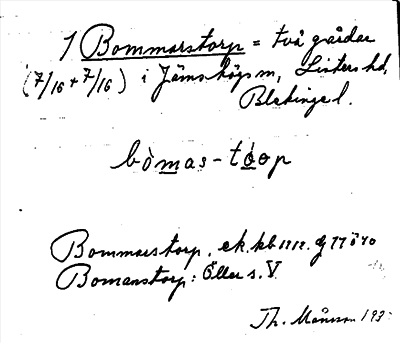 1 Bommarstorp = två gårdar
(7/16 + 7/16) i Jämshögs m, Listers hd,
Blekinge l.
bòmas-tóop
Bommarstorp, ek. kb
Bomanstorp: Öller s. V.
Th. Månsson 193